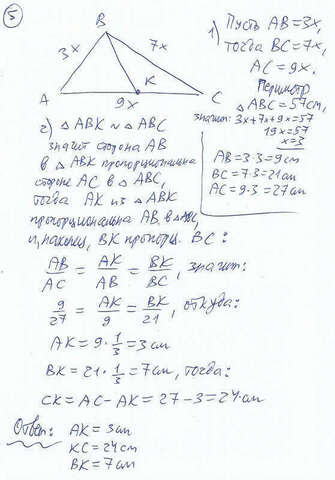 5
B
3x
7x
K
A
9x
C
1) Пусть AB = 3x,
тогда BC = 7x,
AC = 9x.
Периметр
△ABC = 57см,
значит: 3x+7x+9x=57
19x=57
x=3
AB = 3·3 = 9см
BC = 7·3 = 21см
AC = 9·3 = 27см
2) △ABK ~ △ABC
значит сторона AB
в △ABK пропорциональна
стороне AC в △ABC,
тогда AK из △ABK
пропорциональна AB в △ABC,
и, наконец, BK пропорц. BC:
AB/AC = AK/AB = BK/BC, значит:
9/27 = AK/9 = BK/21, откуда:
AK = 9·1/3 = 3см
BK = 21·1/3 = 7см, тогда:
CK = AC - AK = 27 - 3 = 24см
Ответ: AK = 3см
KC = 24см
BK = 7см